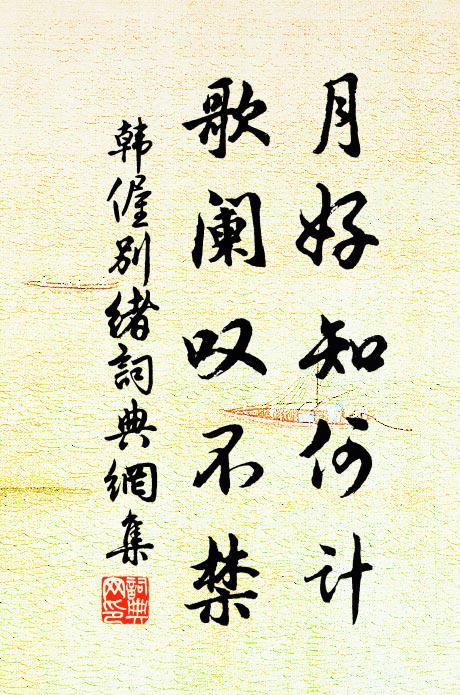 月好知何计
歌阑叹不禁
韩偓别绪詞典網集
詞典
网印